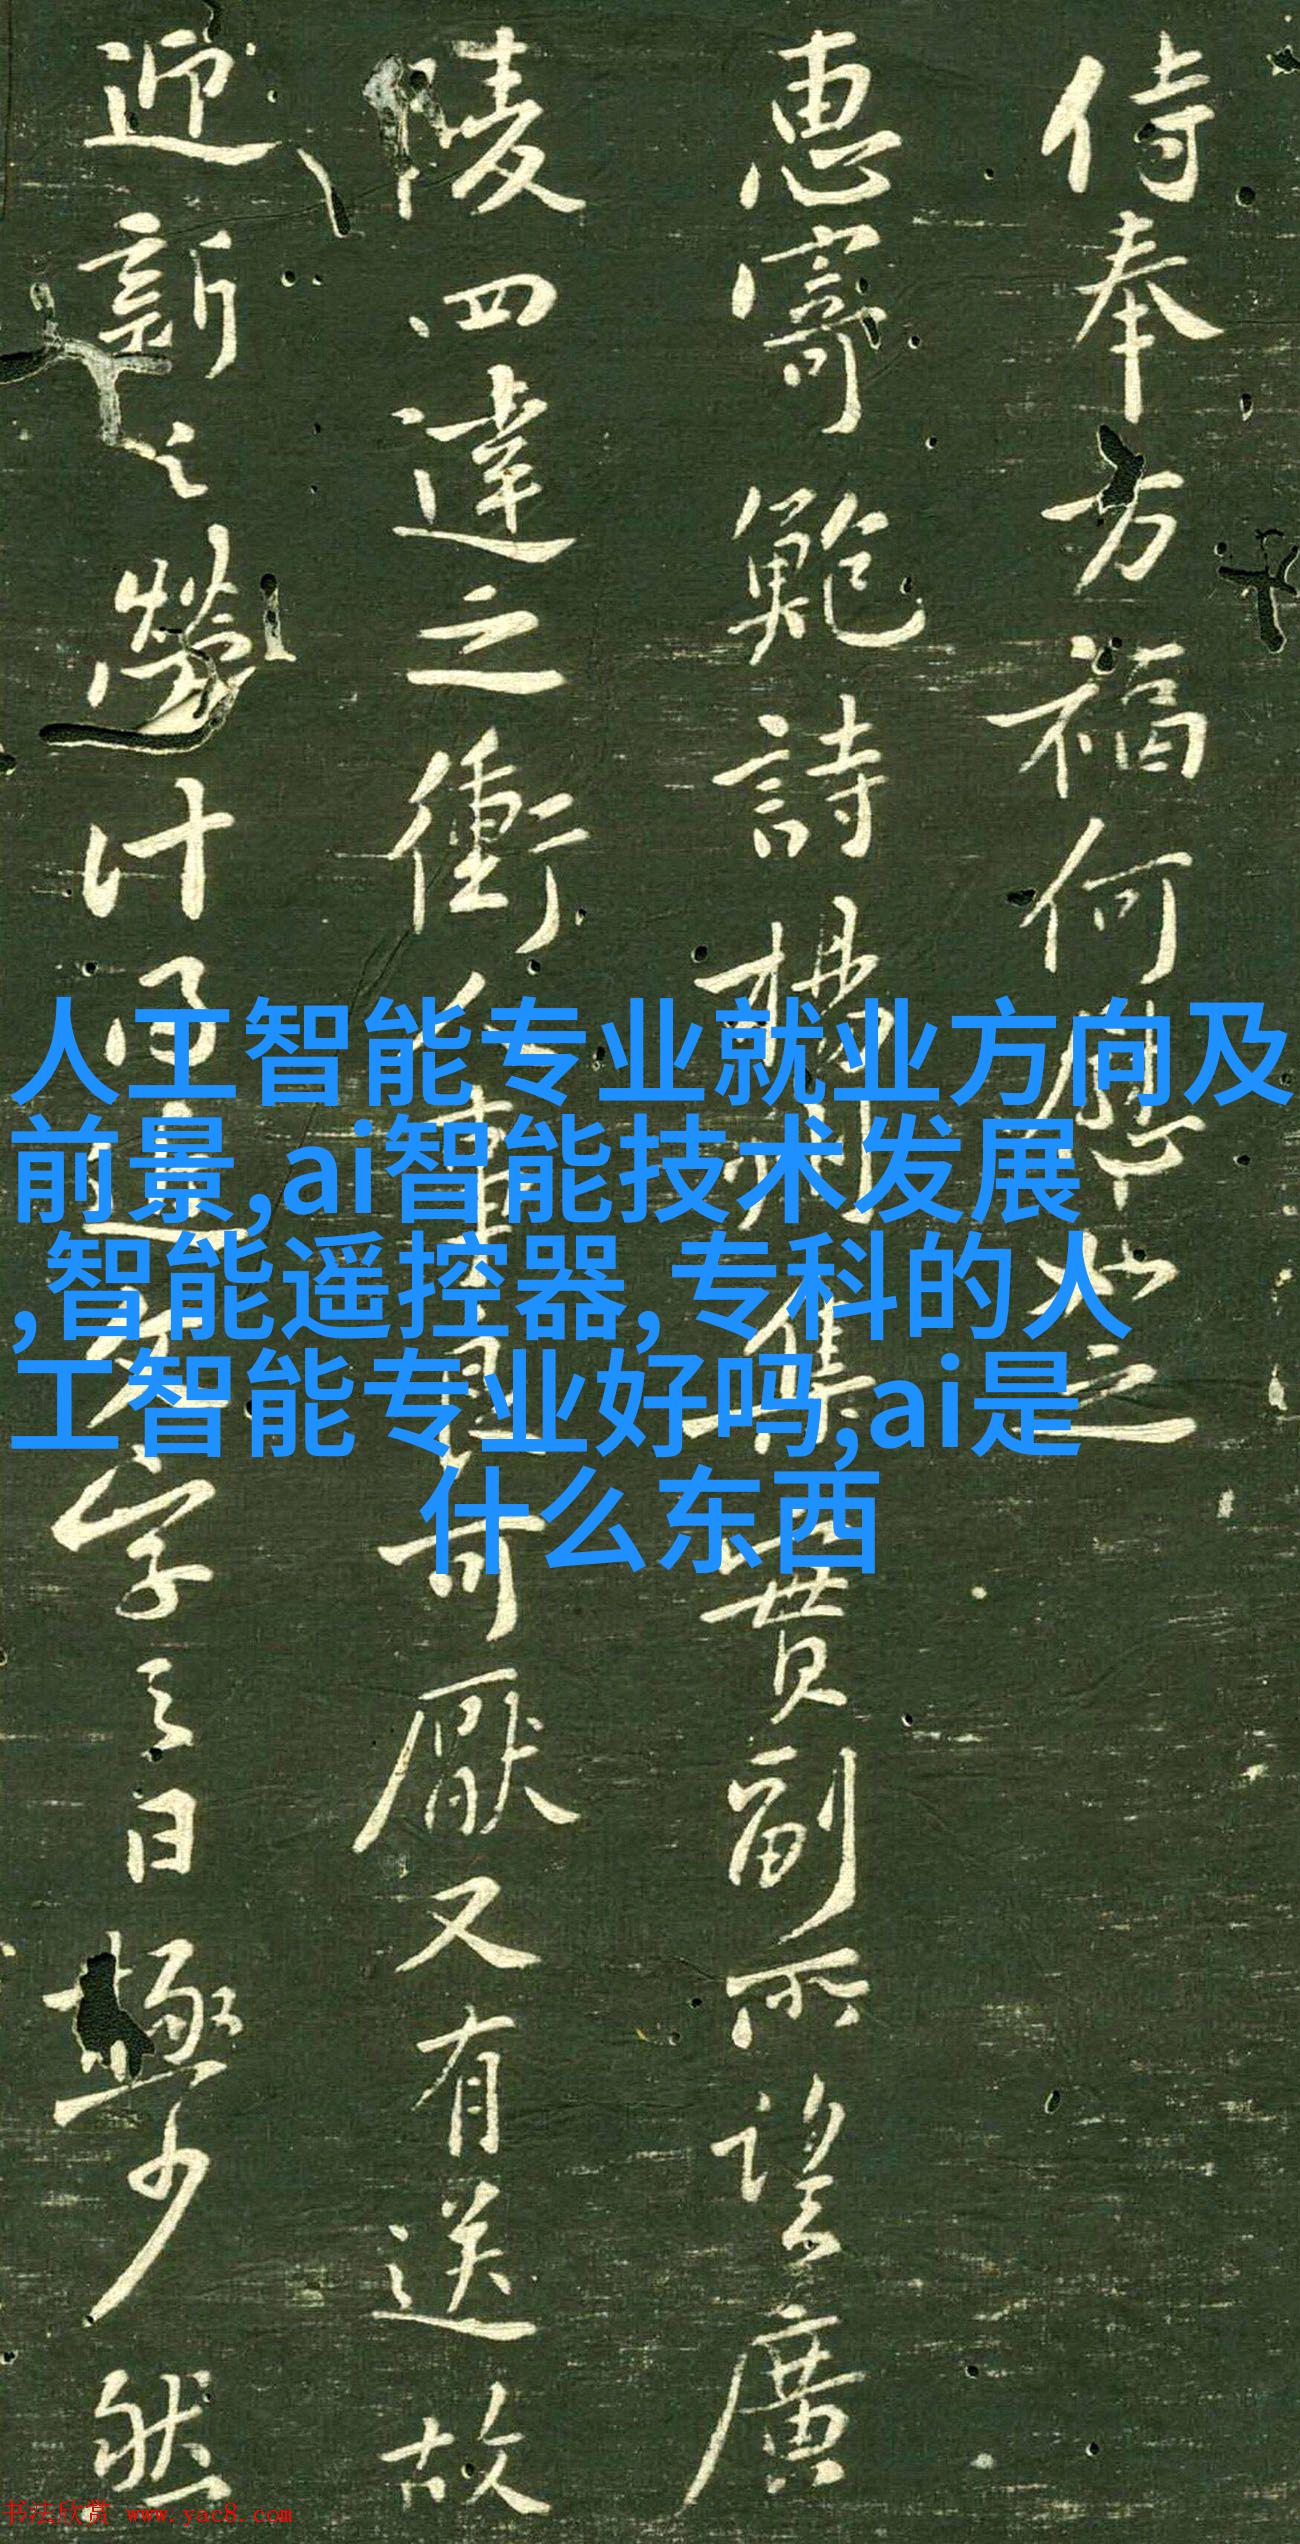 侍奉万福何慰如之
惠寄鲍詩楊州集
贯副所望廣
陵四達之衝人事良可厭又有送故
迎新之勞計
字
日極少然
人工智能专业就业方向及
前景,ai智能技术发展
,智能遥控器,专科的人
工智能专业好吗,ai是
什么东西
书法欣赏 www.yac8.com